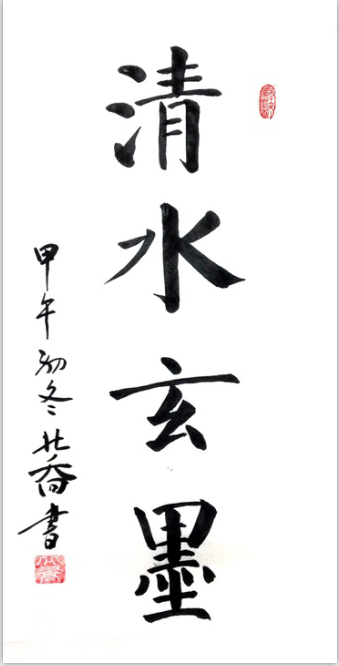 清水玄墨
甲午初冬北喬書